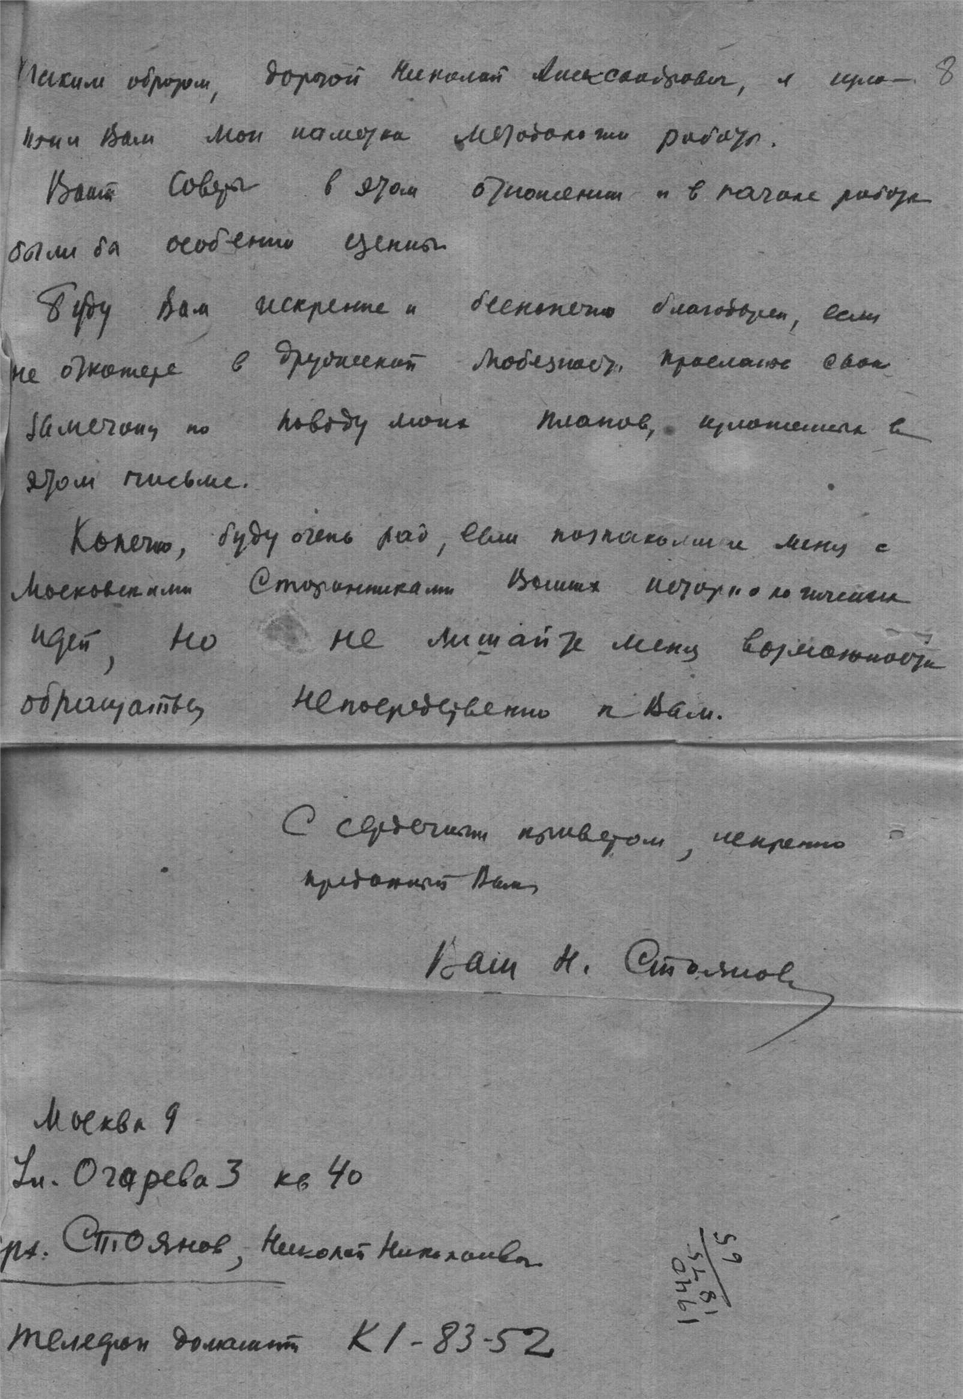 Таким образом, дорогой Николай Александрович, я изло- 8
жил Вам мои наметки методологии работы.
Ваши советы в этом отношении и в начале работы
были бы особенно ценны
Буду Вам искренне и бесконечно благодарен, если
не откажете в дружеской любезности прислать свои
замечания по поводу моих планов, изложенных в
этом письме.
Конечно, буду очень рад, если познакомите меня с
Московскими сторонниками Ваших
идей, но не лишайте меня возможности
обращаться непосредственно к Вам.
С сердечным приветом, искренно
преданный Вам,
Ваш Н. Стоянов
Москва 9
Ул. Огарева 3 кв 40
гр. Стоянов, Николай Николаевич
телефон домашний К1-83-52
1940
1875
65